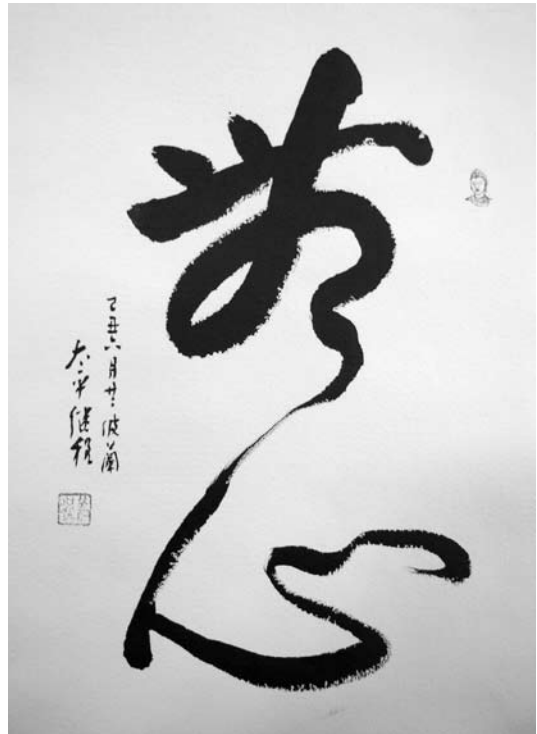 無心
己丑六月廿二波蘭
太平继程